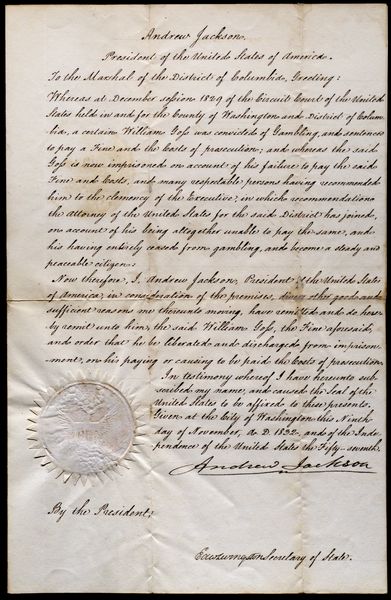 Andrew Jackson.
President of the United States of America.
To the Marshal of the District of Columbia, Greeting:
Whereas at December session 1829 of the Circuit Court of the United
States held in and for the County of Washington and District of Colum-
bia, a certain William Goss was convicted of Gambling, and sentenced
to pay a Fine and the Costs of prosecution; and whereas the said
Goss is now imprisoned on account of his failure to pay the said
Fine and Costs, and many respectable persons having recommended
him to the clemency of the Executive, in which recommendation
the attorney of the United States for the said District has joined,
on account of his being altogether unable to pay the same, and
his having entirely ceased from gambling, and become a steady and
peaceable citizen:
Now therefore, I, Andrew Jackson, President of the United States
of America, in consideration of the premises, divers other good and
sufficient reasons me thereunto moving, have remitted and do here-
by remit unto him, the said William Goss, the Fine aforesaid,
and order that he be liberated and discharged from imprison-
ment, on his paying or causing to be paid the Costs of prosecution.
In testimony whereof I have hereunto sub-
scribed my name, and caused the Seal of the
United States to be affixed to these presents.
Given at the City of Washington this Ninth
day of November, A. D. 1832, and of the Inde-
pendence of the United States the Fifty-seventh.
Andrew Jackson
By the President:
Edw. Livingston Secretary of State.